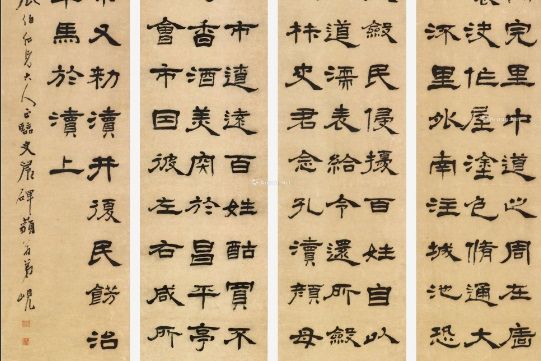 完里中道之周左廧
決作屋塗色脩通大
流里外南注城池恐
斂民侵擾百姓自以
道濡表給令還所斂
材史君念孔瀆顏母
市遼遠百姓酤買不
香酒美肉於昌平亭
會市因彼左右咸所
又勑瀆井復民餝治
車馬於瀆上
伯仁兄大人正臨史晨碑藐翁弟峴